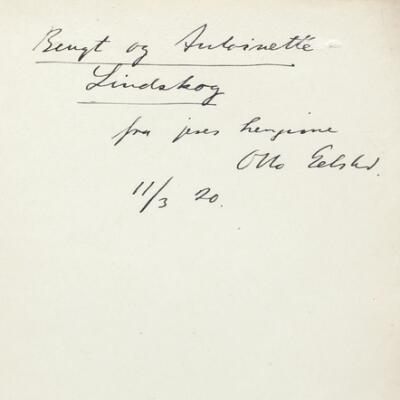 Bengt og Antoinette
Lindskog
fra jeres hengivne
Otto Gelsted.
11/3 20.